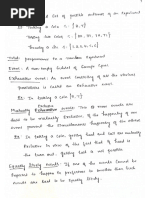 and list of possible outcomes of an experiment
Ex: Tossing a coin = {H, T}
Tossing two coins = {HH, HT, TH, TT}
Throwing a die = {1,2,3,4,5,6}
Trial: performance of a random experiment
Event: A non-empty subset of Sample Space
Exhaustive event: An event consisting of all the various
possibilities is called an Exhaustive event.
Ex: In tossing a coin {H, T}
Mutually Exclusive events: Two or more events are
said to be mutually Exclusive, if the happening of one
event prevent the simultaneous happening of the others.
Ex: In tossing a coin, getting head and tail are mutually
Exclusive in view of the fact that if head is
the turn out, getting tail is not possible.
Equally Likely events: If one of the events cannot be
expected to happen in preference to another then such
events are said to be Equally likely.